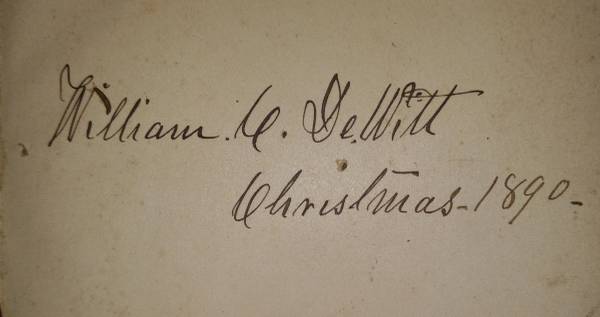 William. C. DeWitt
Christmas-1890-